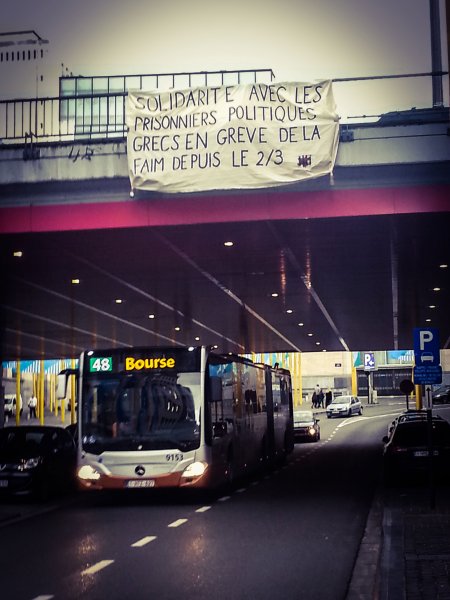 SOLIDARITE AVEC LES
PRISONNIERS POLITIQUES
GRECS EN GREVE DE LA
FAIM DEPUIS LE 2/3
48 Bourse
9153
P
P